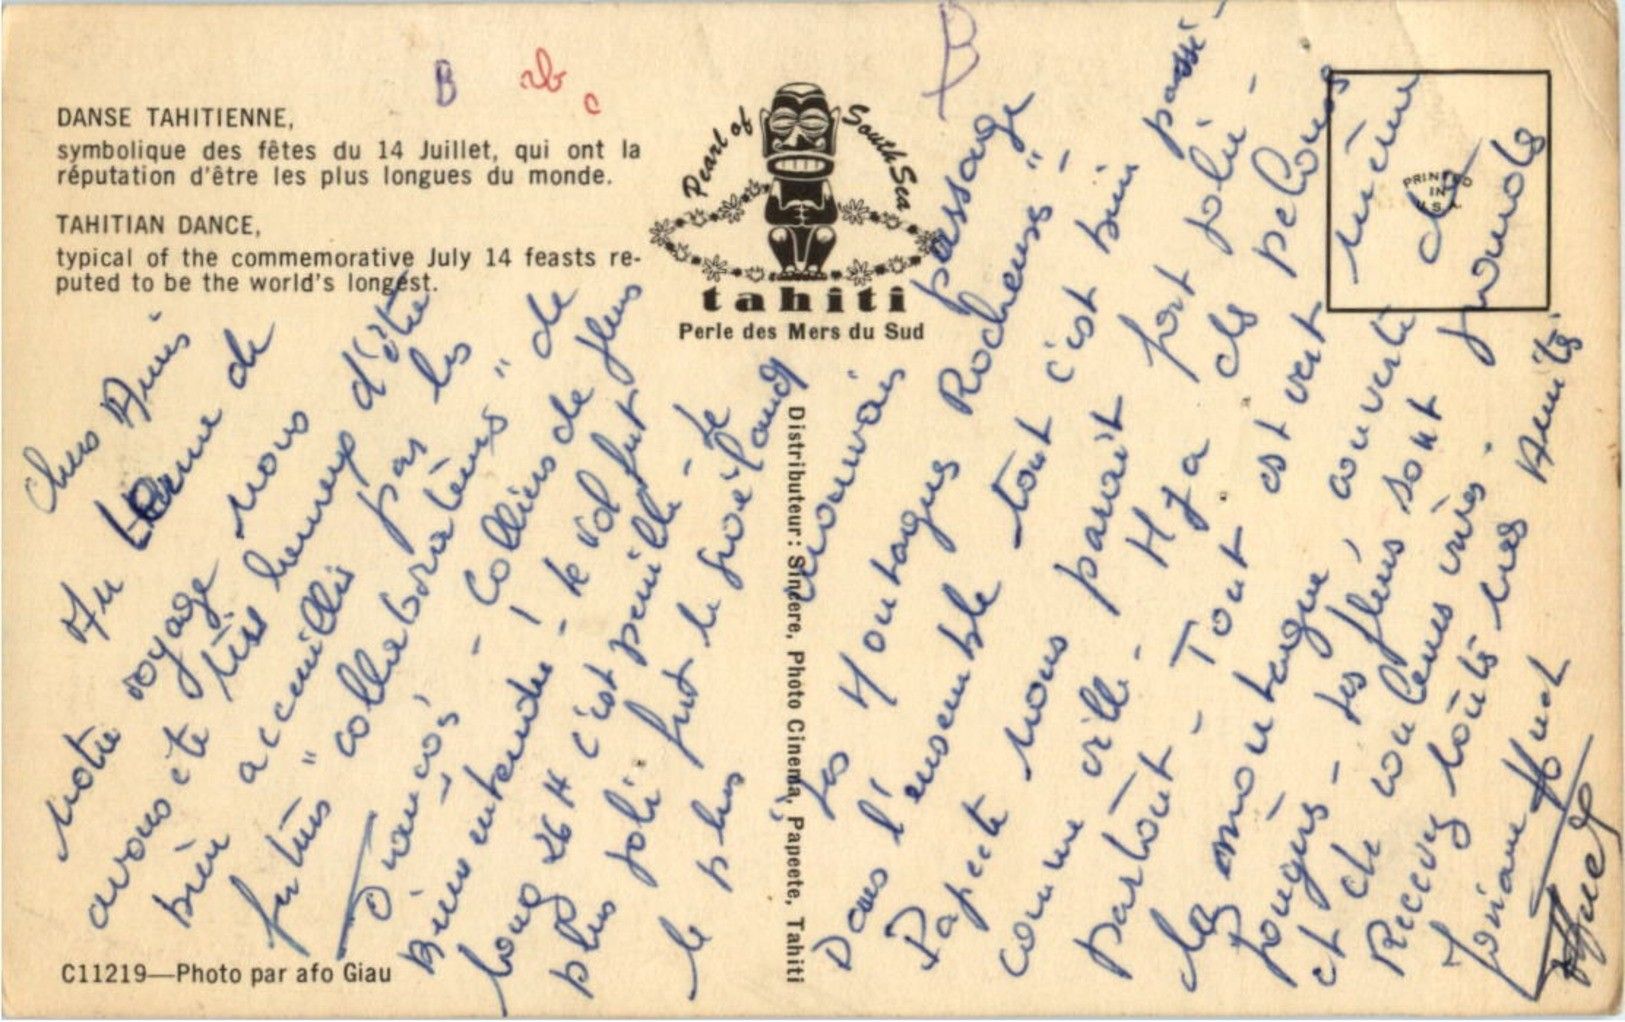 DANSE TAHITIENNE,
symbolique des fêtes du 14 Juillet, qui ont la
réputation d'être les plus longues du monde.
TAHITIAN DANCE,
typical of the commemorative July 14 feasts re-
puted to be the world's longest.
B
ab
c
B
Pearl of South Sea
tahiti
Perle des Mers du Sud
PRINTED
IN
U.S.A.
Chers Amis
Au terme de
notre voyage nous
avons été très heureux d'être
bien accueillis par les
futurs "collaborateurs" de
François - Colliers de fleurs
Bien entendu! le vol fut
long 26 H c'est pénible - Le
plus joli fut le Groenland
le plus mauvais passage
Les Montagnes Rocheuses" -
Dans l'ensemble tout c'est bien passé -
Papeete nous parait fort jolie -
comme ville - Il y a des pelouses
partout - Tout est vert même
les montagnes couvertes de
fougères - les fleurs sont grandes
et de couleurs vives -
Recevez toutes nos Amitiés
Josiane Huet
Huet
Distributeur: Sincere, Photo Cinema, Papeete, Tahiti
C11219—Photo par afo Giau